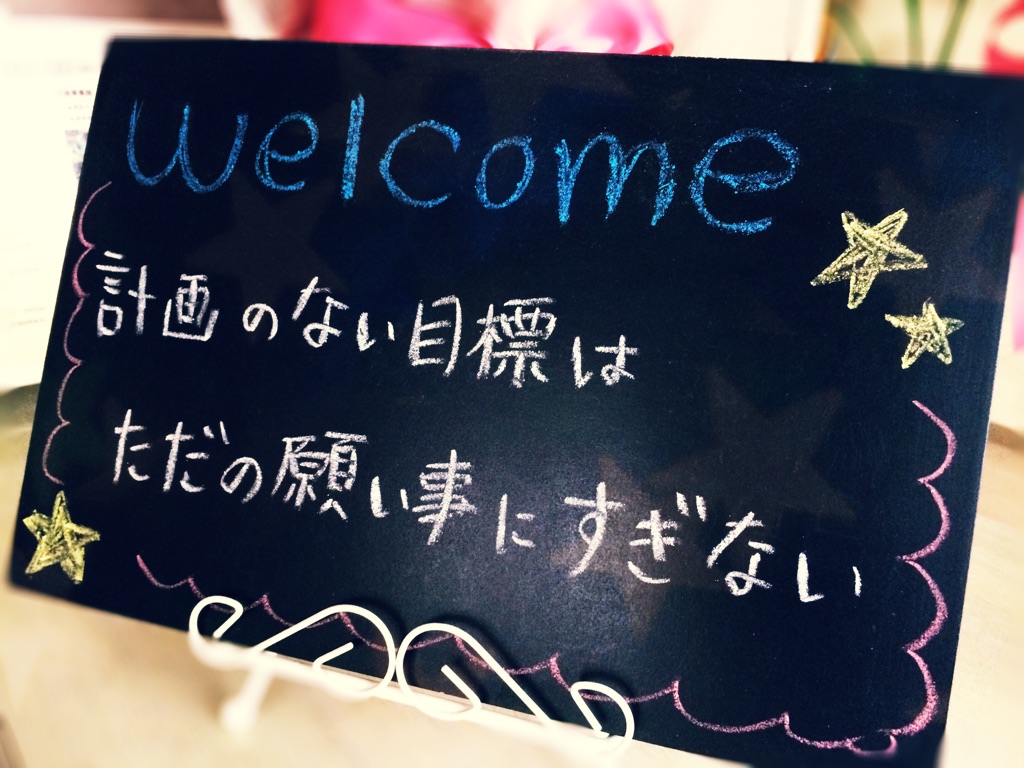 welcome
計画のない目標は
ただの願い事にすぎない